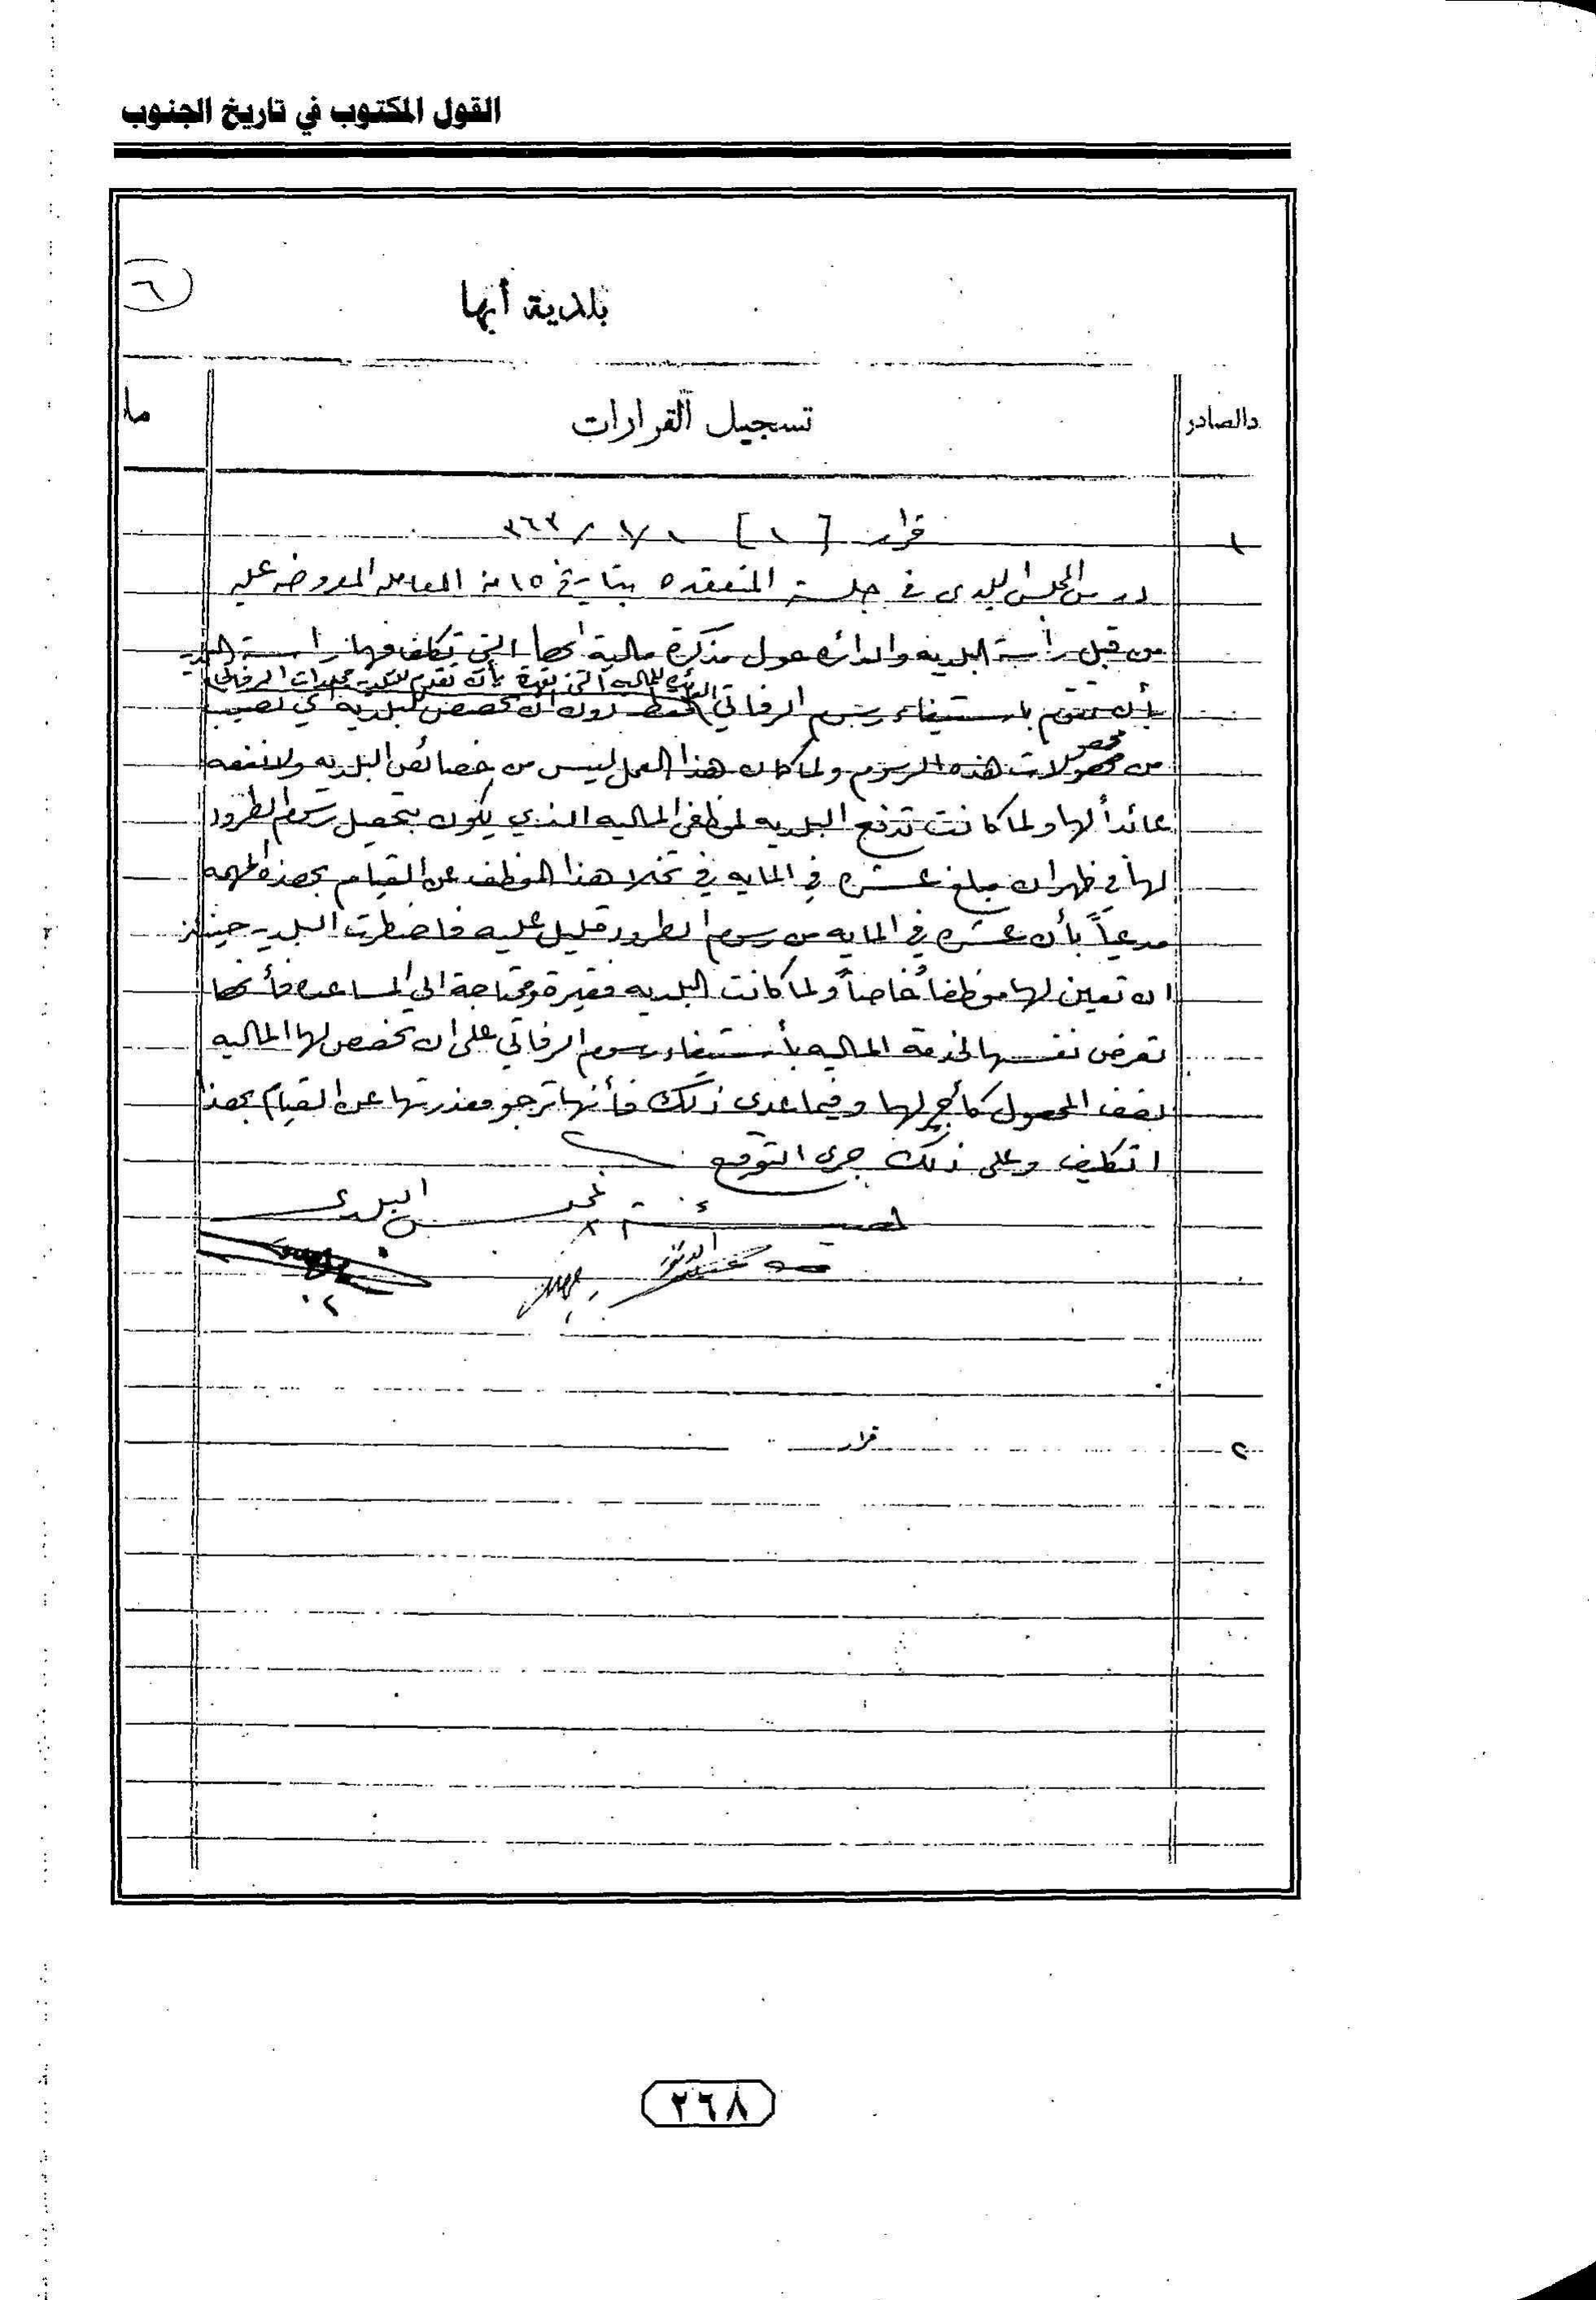 القول المكتوب في تاريخ الجنوب
٦
بلدية أبها
دالصادر
تسجيل القرارات
ما
١
قرار [١] ١/١/٣٦٣
درس المجلس البلدي في جلسته المنعقده بتاريخ ١٥ منه المعامله المعروضه عليه
من قبل رأسة البلديه والدائره حول مذكرة مالية ابها التي تكلف فيها رأسة البلديه
للماليه التي
بأن تقوم باستيفاء رسوم الرفاتي فقط دون ان تخصص للبلدية اي نصيب
من محصولات هذه الرسوم ولما كان هذا العمل ليس من خصائص البلديه ولا نفعه
عائداً لها ولما كانت تدفع البلديه لموظفي الماليه الذي يكون بتحصيل رسوم الطرود
لها في ظهران مبلغ عشره في المايه في تخلا هذا الموظف عن القيام بهذه المهمه
مدعياً بأن عشره في المايه من رسوم الطرود قليل عليه فاضطرت البلديه حينئذ
ان تعين لها موظفاً خاصاً ولما كانت البلديه فقيرة ومحتاجة الي المساعده فأنها
تعرض نفسها لخدمة الماليه بأستيفاء رسوم الرفاتي على ان تخصص لها الماليه
نصف المحصول كأجر لها وفيما عدى ذلك فأنها ترجو معذرتها عن القيام بهذا
التكليف وعلى ذلك جرى التوقيع
هيئة المجلس البلدي
٢
قرار
٢٦٨